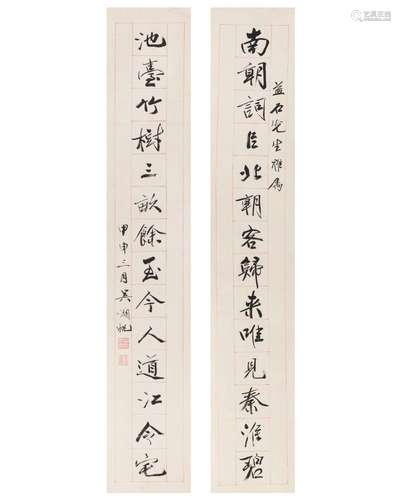 南朝詞臣北朝客歸来唯見秦淮碧
益石先生雅属
池臺竹樹三畝餘至今人道江令宅
甲申三月吴湖帆